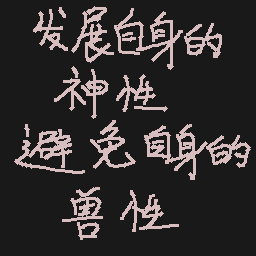 发展自身的
神性
避免自身的
兽性